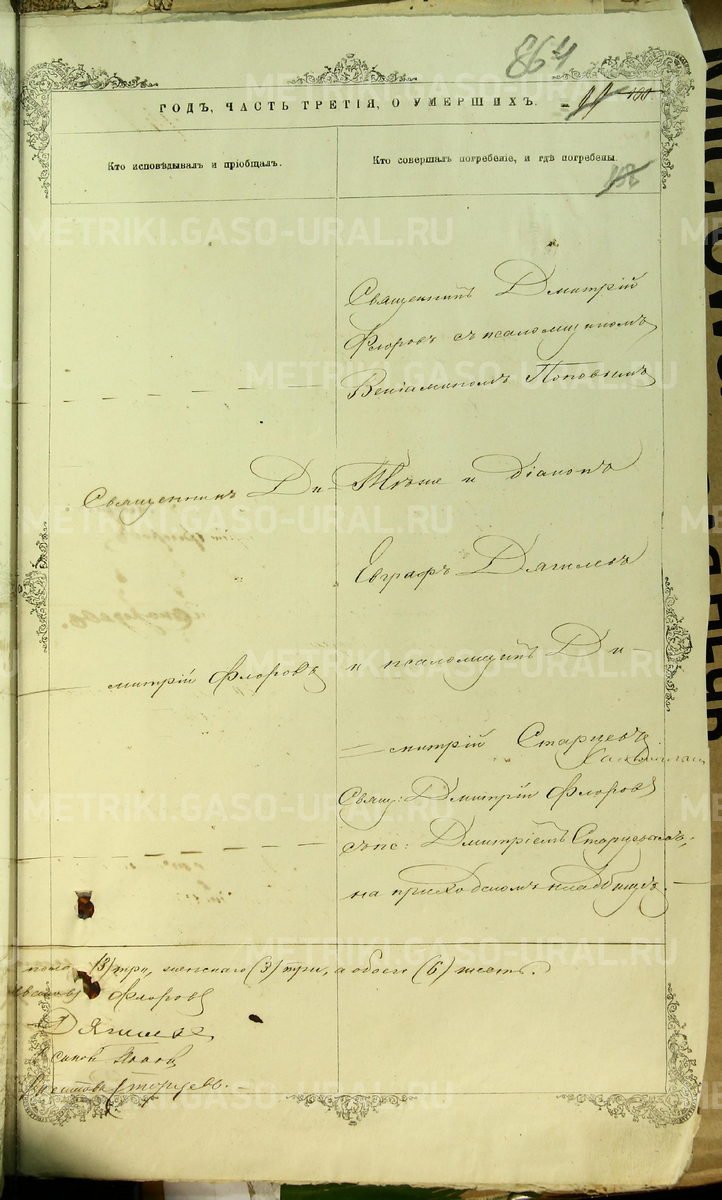 864
ГОДЪ, ЧАСТЬ ТРЕТІЯ, О УМЕРШИХЪ.
Кто исповѣдывалъ и пріобщалъ.
Кто совершалъ погребеніе, и гдѣ погребены.
Священникъ Дмитрій
Флоровъ съ псаломщикомъ
Веніаминомъ Поповымъ
Священникъ Ди-
митрій Флоровъ
Тѣже и діаконъ
Евграфъ Дягилевъ
и псаломщикъ Ди-
митрій Старцевъ
Свящ: Дмитрій Флоровъ
съ пс: Дмитріемъ Старцевымъ,
на приходскомъ кладбищѣ.
(3) три, женскаго (3) три, а обоего (6) шесть.
Флоровъ
Дягилевъ
Поповъ
Старцевъ.
METRIKI.GASO-URAL.RU